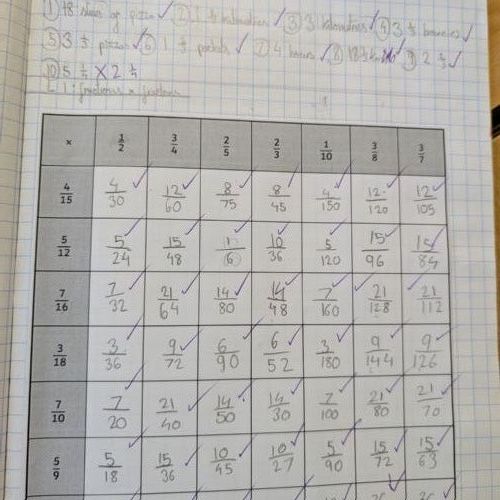 ① 18 slices of pizza ✓ ② 1 kilometres ✓ ③ 3 kilometres ✓ ④ 3 ✓
⑤ 3 pizzas ✓ ⑥ 1 ✓ ⑦ 4 hours ✓ ⑧ 18 ✓ ⑨ 2 ✓
⑩ 5 X 2
L I: fractions × fractions
× 1/2 3/4 2/5 2/3 1/10 3/8 3/7
4/15 4/30 ✓ 12/60 ✓ 8/75 ✓ 8/45 ✓ 4/150 ✓ 12/120 ✓ 12/105 ✓
5/12 5/24 ✓ 15/48 ✓ 1/6 ✓ 10/36 ✓ 5/120 ✓ 15/96 ✓ 15/84 ✓
7/16 7/32 ✓ 21/64 ✓ 14/80 ✓ 14/48 ✓ 7/160 ✓ 21/128 ✓ 21/112 ✓
3/18 3/36 ✓ 9/72 ✓ 6/90 ✓ 6/52 ✓ 3/180 ✓ 9/144 ✓ 9/126 ✓
7/10 7/20 ✓ 21/40 ✓ 14/50 ✓ 14/30 ✓ 7/100 ✓ 21/80 ✓ 21/70 ✓
5/9 5/18 ✓ 15/36 ✓ 10/45 ✓ 10/27 ✓ 5/90 ✓ 15/72 ✓ 15/63 ✓